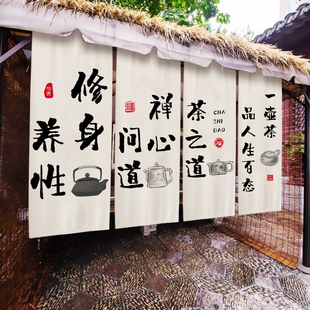 一壶茶
品人生百态
茶之道
CHA
ZHI
DAO
禅心
问道
修身
养性